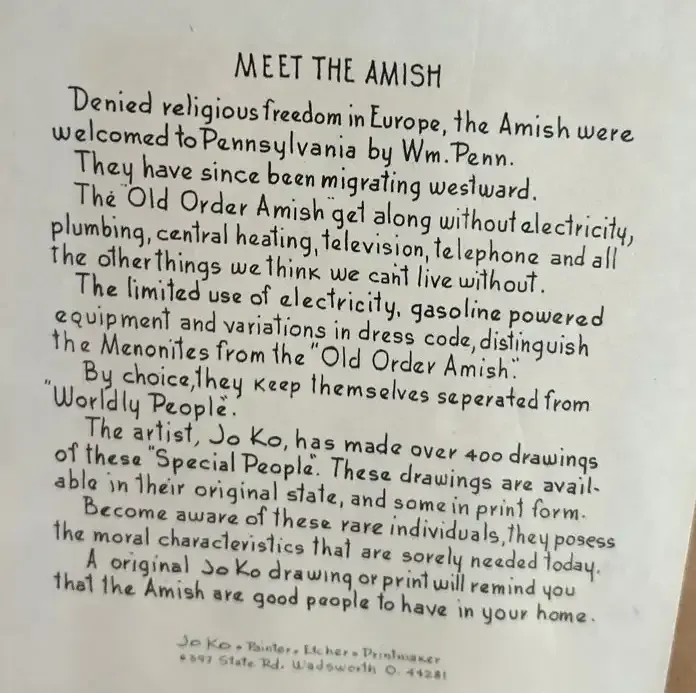 MEET THE AMISH
Denied religious freedom in Europe, the Amish were
welcomed to Pennsylvania by Wm. Penn.
They have since been migrating westward.
The "Old Order Amish" get along without electricity,
plumbing, central heating, television, telephone and all
the other things we think we can't live without.
The limited use of electricity, gasoline powered
equipment and variations in dress code, distinguish
the Menonites from the "Old Order Amish".
By choice, they keep themselves seperated from
"Worldly People".
The artist, Jo Ko, has made over 400 drawings
of these "Special People". These drawings are avail-
able in their original state, and some in print form.
Become aware of these rare individuals, they posess
the moral characteristics that are sorely needed today.
A original Jo Ko drawing or print will remind you
that the Amish are good people to have in your home.
Jo Ko • Painter • Etcher • Printmaker
State Rd. Wadsworth O. 44281